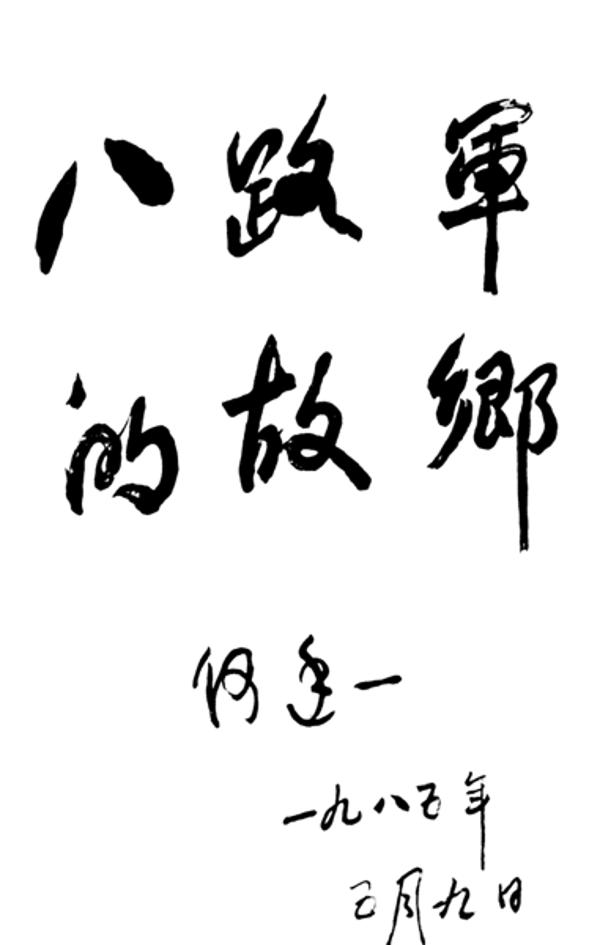 八路軍
的故鄉
何正一
一九八五年
五月九日